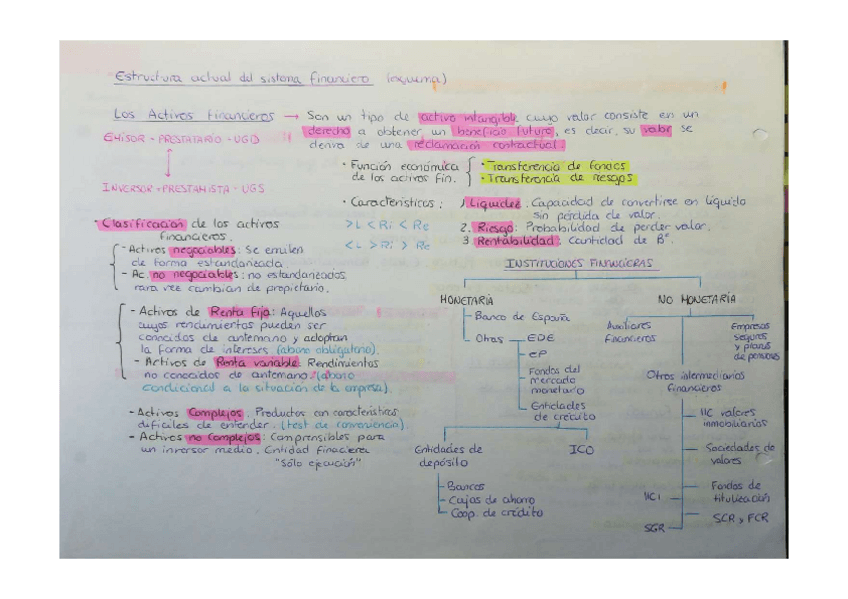 Estructura actual del sistema financiero (esquema)
Los Activos Financieros → Son un tipo de activo intangible cuyo valor consiste en un
derecho a obtener un beneficio futuro, es decir, su valor se
deriva de una reclamación contractual.
EMISOR - PRESTATARIO - UGD
INVERSOR - PRESTAMISTA - UGS
· Función económica
de los activos fin.
· Transferencia de fondos
· Transferencia de riesgos
· Características:
1. Liquidez: Capacidad de convertirse en líquido
sin pérdida de valor.
2. Riesgo: Probabilidad de perder valor.
3. Rentabilidad: Cantidad de Bº.
>L < Ri < Re
<L > Ri > Re
· Clasificación de los activos
financieros.
- Activos negociables: Se emiten
de forma estandarizada.
- Ac. no negociables: no estandarizados,
rara vez cambian de propietario.
- Activos de Renta Fija: Aquellos
cuyos rendimientos pueden ser
conocidos de antemano y adoptan
la forma de intereses (abono obligatorio).
- Activos de Renta variable: Rendimientos
no conocidos de antemano (abono
condicional a la situación de la empresa).
- Activos Complejos: Productos con características
difíciles de entender. (test de conveniencia).
- Activos no Complejos: Comprensibles para
un inversor medio. Entidad financiera
"sólo ejecución"
INSTITUCIONES FINANCIERAS
MONETARIA
- Banco de España
- Otras
- EDE
- EP
- Fondos del
mercado
monetario
- Entidades
de crédito
Entidades de
depósito
- Bancos
- Cajas de ahorro
- Coop. de crédito
ICO
NO MONETARIA
Auxiliares
financieros
Empresas
seguros
y planes
de pensiones
Otros intermediarios
financieros
IIC valores
inmobiliarios
Sociedades de
valores
Fondos de
titulización
SCR y FCR
IICI
SGR